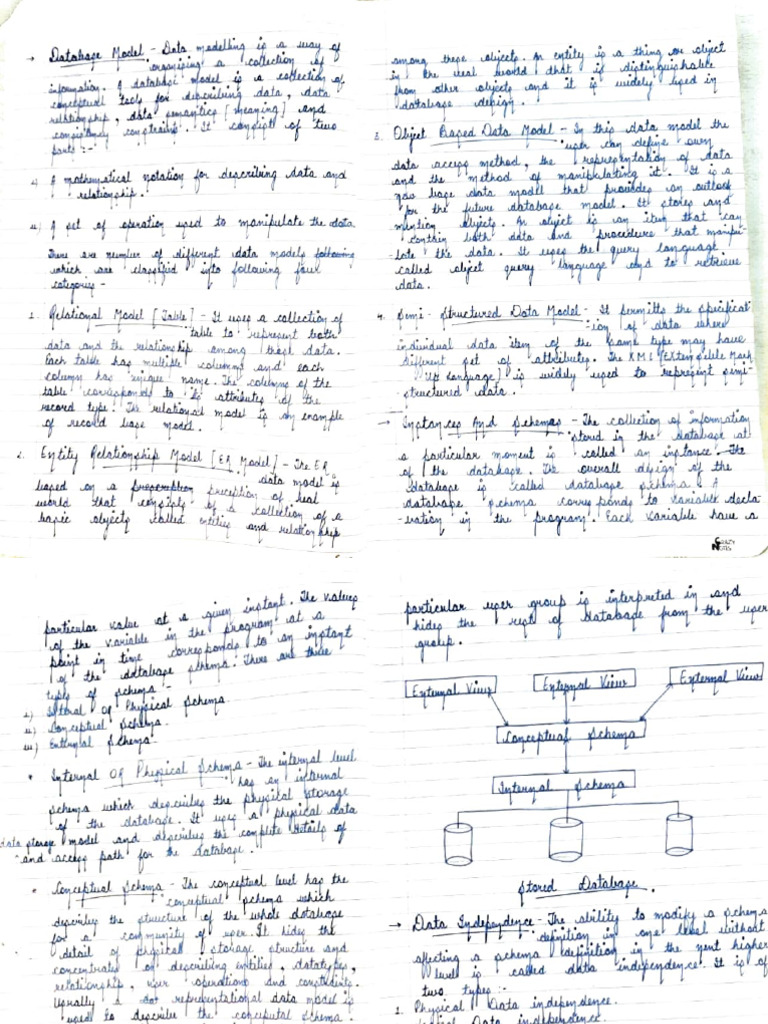 → Database Model - Data modelling is a way of
organising a collection of
information. A database model is a collection of
conceptual tools for describing data, data
relationship, data semantics [meaning] and
consistency constraints. It consist of two
parts :-
i) A mathematical notation for describing data and
relationship.
ii) A set of operation used to manipulate the data.
There are number of different data models following
which are classified into following four
categories -
1. Relational Model [Table] - It uses a collection of
table to represent both
data and the relationship among those data.
Each table has multiple columns and each
column has unique name. The columns of the
table corresponds to its attributes of the
record type. The relational model is an example
of record base model.
2. Entity Relationship Model [ER Model] - The ER
data model is
based on a perception of real
world that consists of a collection of a
basic objects called entities and relationship
among these objects. An entity is a thing or object
in the real world that is distinguishable
from other objects and it is widely used in
database design.
3. Object Based Data Model - In this data model the
user can define own
data access method, the representation of data
and the method of manipulating it. It is a
new base data model that provides an outlook
for the future database model. It stores and
objects. An object is an item that can
contain both data and procedure that manipu-
-late the data. It uses the query language
called object query language and to retrieve
data.
4. Semi - Structured Data Model - It permits the specificat-
ion of data where
individual data item of the same type may have
different set of attributes. The XML [Extensible Mark
Up Language] is widely used to represent semi-
structured data.
→ Instances And Schemas - The collection of information
stored in the database at
a particular moment is called an instance. The
of the database. The overall design of the
database is called database schema. A
database schema corresponds to variable decla-
-ration in the program. Each variable have a
CRAZY
NOTES
particular value at a given instant. The values
of the variable in the program at a
point in time corresponds to an instant
of the database schema. There are three
types of schema -
i) Internal or Physical Schema
ii) Conceptual Schema.
iii) External Schema.
• Internal or Physical Schema - The internal level
has an internal
schema which describes the physical storage
of the database. It uses a physical data
data storage model and describes the complete details of
and access path for the database.
• Conceptual Schema - The conceptual level has the
conceptual schema which
describes the structure of the whole database
for a community of user. It hides the
detail of physical storage structure and
concentrates on describing entities, datatypes,
relationship, user operations and constraints.
Usually a representational data model is
used to describe the conceptual schema.
particular user group is interpreted in and
hides the rest of database from the user
group.
External View External View External View
Conceptual Schema
Internal Schema
Stored Database.
→ Data Independence - The ability to modify a schema
definition in one level without
affecting a schema definition in the next higher
level is called data independence. It is of
two types :-
1. Physical Data independence.
Data independence.